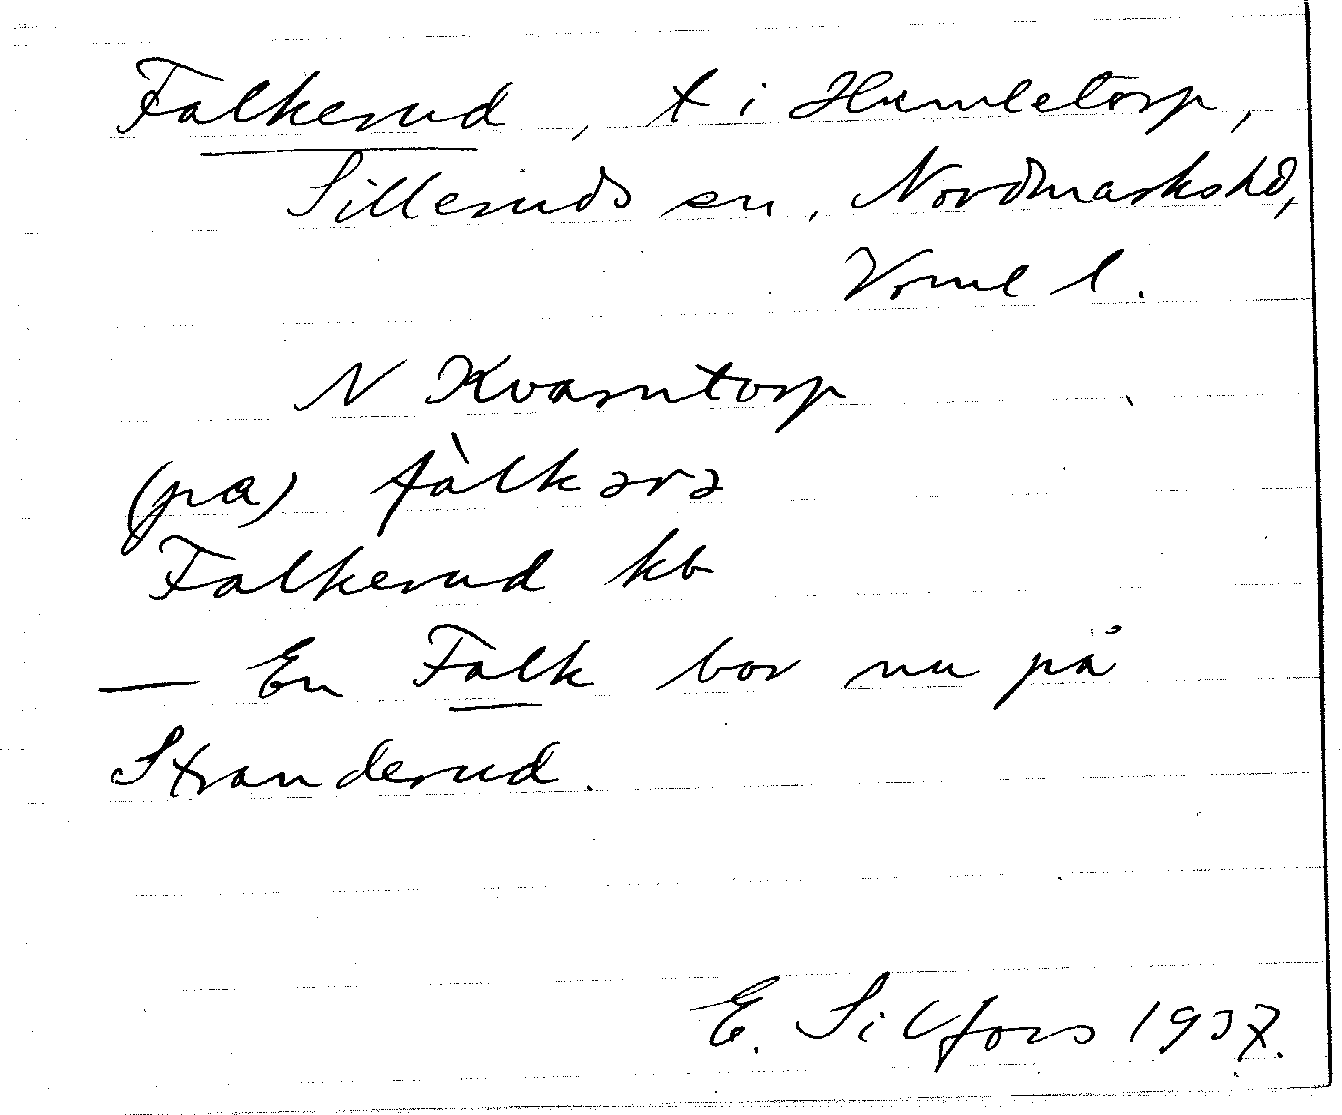 Falkerud, t i Humletorp,
Silleruds sn, Nordmarkshd,
Vrml l.
N Kvarntorp
(pa) fàlkərə
Falkerud kb
— En Falk bor nu på
Stranderud.
E. Silfors 1937.